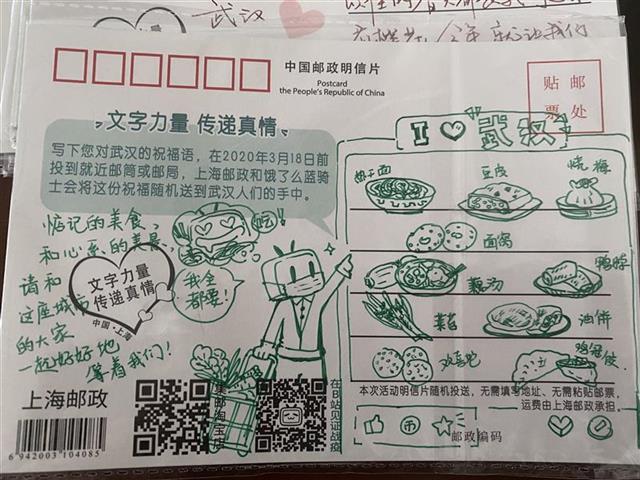 武汉
中国邮政明信片
Postcard
the People's Republic of China
贴 邮
票 处
文字力量 传递真情
写下您对武汉的祝福语，在2020年3月18日前
投到就近邮筒或邮局，上海邮政和饿了么蓝骑
士会将这份祝福随机送到武汉人们的手中。
I 武汉
热干面
豆皮
烧梅
面窝
鸭脖
藕汤
菜苔
油饼
欢喜坨
鸡冠饺
惦记的美食，
和心系的美景，
请和
这座城市
的大家
一起好好地
等着我们！
吃！！
我全
都要！
文字力量
传递真情
中国·上海
上海邮政
6 942003 104085
集邮淘宝店
在B站见证战疫
本次活动明信片随机投送，无需填写地址、无需粘贴邮票，
运费由上海邮政承担。
邮政编码